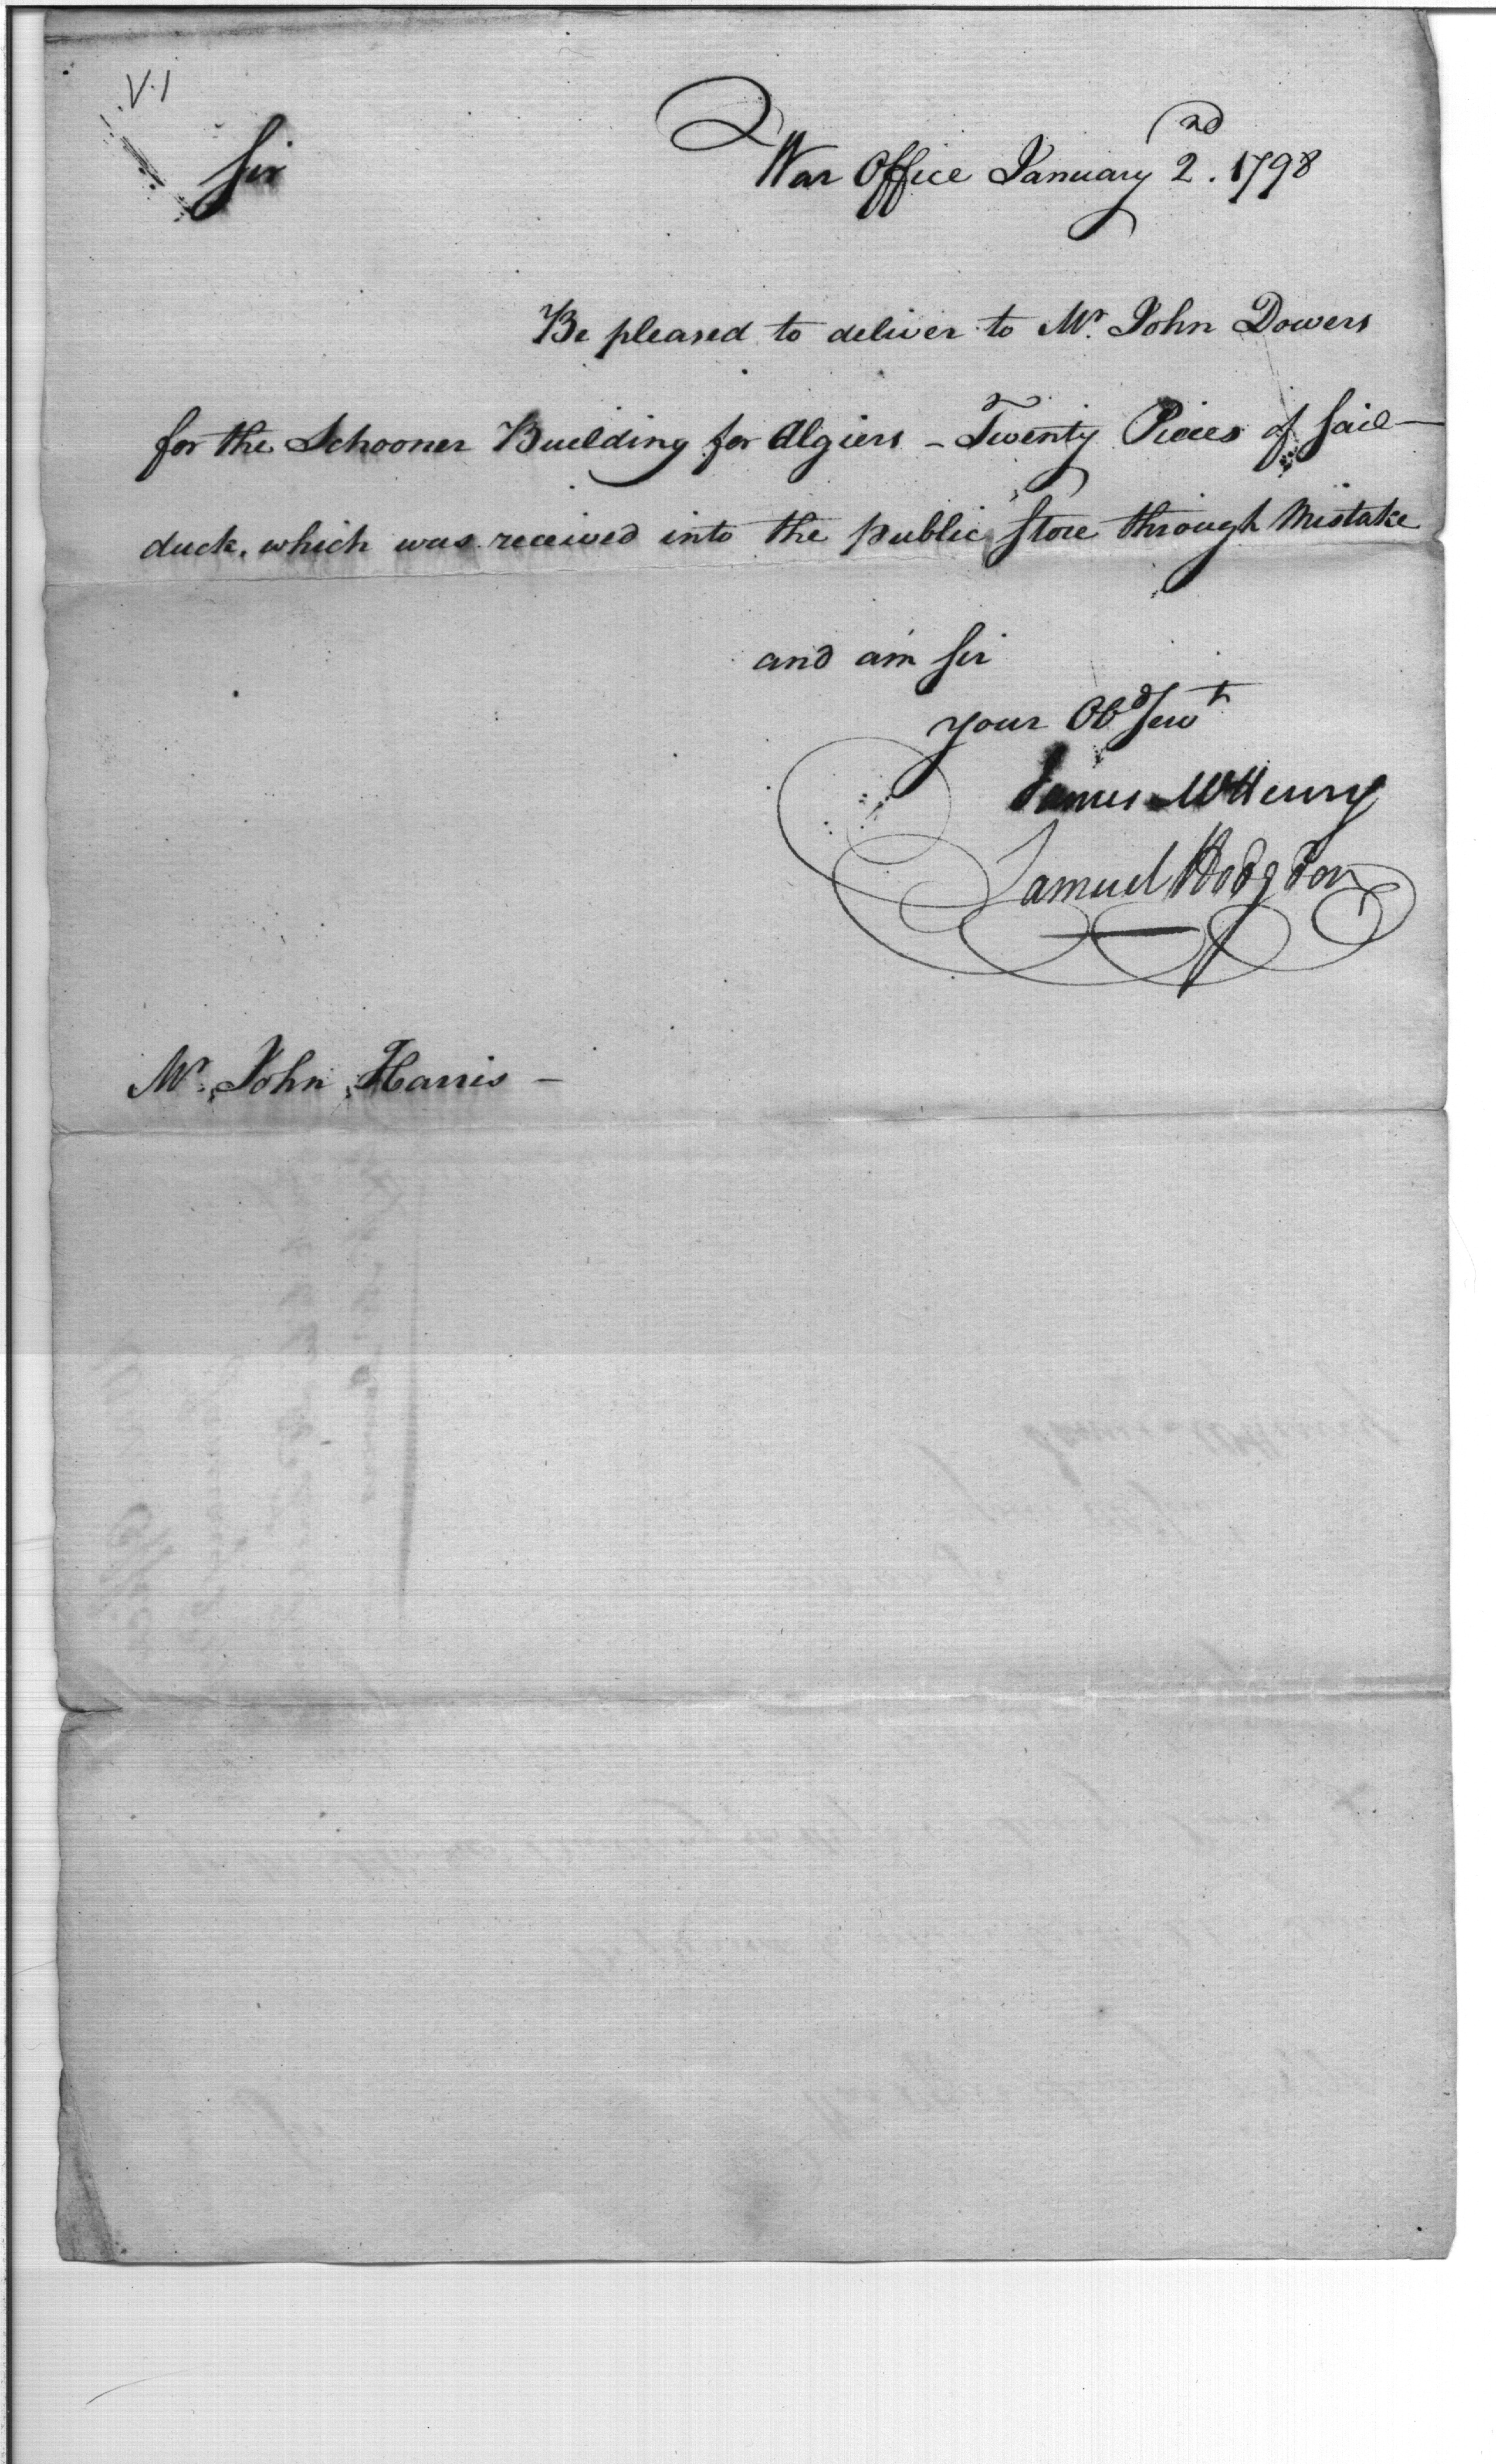 V.1
Sir
War Office January 2nd. 1798
Be pleased to deliver to Mr. John Dowers
for the Schooner Building for Algiers - Twenty Pieces of Sail-
duck, which was received into the public Store through Mistake
and am Sir
your Obd Servt
James McHenry
Samuel Hodgdon
Mr. John Harris -